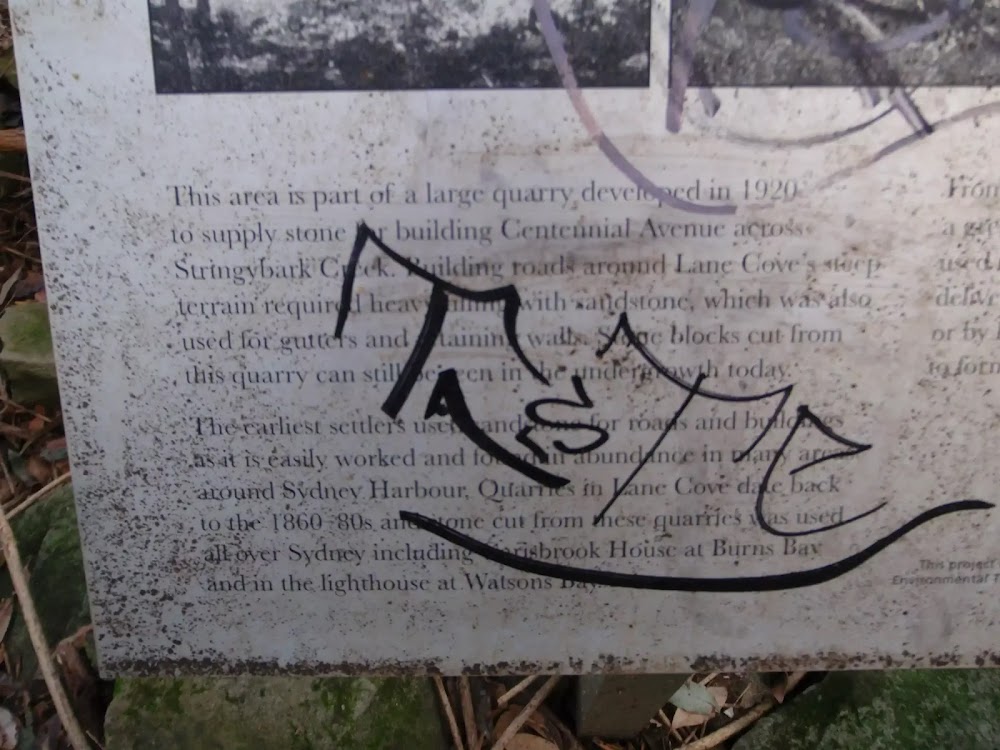 This area is part of a large quarry developed in 1920
to supply stone for building Centennial Avenue across
Stringybark Creek. Building roads around Lane Cove's steep
terrain required heavy with sandstone, which was also
used for gutters and retaining walls. Stone blocks cut from
this quarry can still be seen in the undergrowth today.
The earliest settlers used sandstone for roads and buildings
as it is easily worked and found in abundance in many areas
around Sydney Harbour. Quarries in Lane Cove date back
to the 1860-80s and stone cut from these quarries was used
all over Sydney including Carisbrook House at Burns Bay
and in the lighthouse at Watsons Bay.
From
used
or by
to form
This project
Environmental